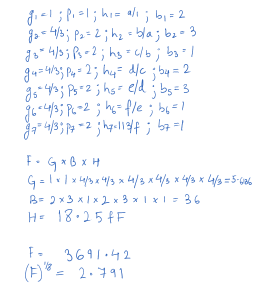 g₁=1 ; p₁=1 ; h₁= a/1 ; b₁=2
g₂=4/3 ; p₂=2 ; h₂= b/a ; b₂=3
g₃=4/3 ; p₃=2 ; h₃= c/b ; b₃=1
g₄=4/3 ; p₄=2 ; h₄= d/c ; b₄=2
g₅=4/3 ; p₅=2 ; h₅= e/d ; b₅=3
g₆=4/3 ; p₆=2 ; h₆= f/e ; b₆=1
g₇=4/3 ; p₇=2 ; h₇= /f ; b₇=1
F= G×B×H
G= 1×1×4/3×4/3×4/3×4/3×4/3×4/3=
B= 2×3×1×2×3×1×1 = 36
H= 18.25 fF
F= 3691.42
(F)^ = 2.791